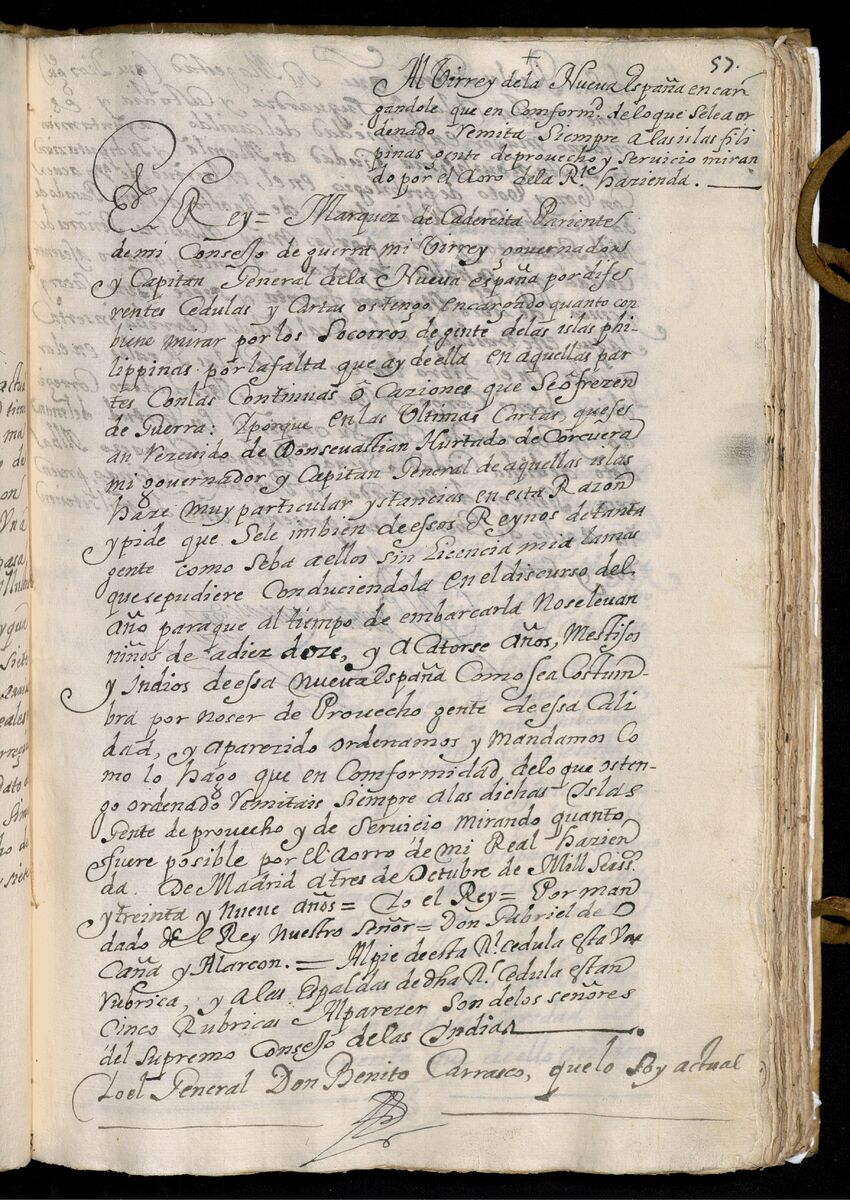 57.
+
Al Virrey dela Nueva España encar
gandole que en Comform.d delo que sele a or
denado Remita Siempre a las islas fili
pinas gente de provecho y Servicio miran
do por el Aoro dela R.l hazienda. —
El Rey = Marquez de Cadereita Pariente
de mi Consejo de guerra mi Virrey governador
y Capitan General dela Nueva españa por dife
rentes Cedulas y Cartas os tengo encargado quanto con
biene mirar por los Socorros de gente delas islas phi-
lippinas por la falta que ay de ella en aquellas par
tes Con las Continuas ôCaziones que Se ôfrezen
de Guerra: Y porque en las Ultimas Cartas, que se s
an Rezevido de Don sevastian Hurtado de Corcuera
mi governador y Capitan General de aquellas islas
haze muy particular ystancias en esta Razon
y pide que Sele imbien de essos Reynos de tanta
gente como Se ba a ellos sin Licencia mia la mas
que se pudiere Conduciendola en el discurso del
año para que al tiempo de embarcarla No se levan
niños de a diez doze, y a Catorse Años, Mestisos
y Indios de essa Nueva España Como se a Costum-
bra por no ser de Provecho gente de essa Cali
dad, y a parezido ordenamos y Mandamos Co
mo lo hago que en Comformidad, delo que os ten-
go ordenado Remitais Siempre a las dichas Islas
Gente de provecho y de Servicio Mirando quanto
fuere posible por el Aorro de mi Real hazien
da. De Madrid a tres de Octubre de Mill Seiss.s
y treinta y Nueve años = Yo el Rey = Por man
dado de el Rey Nuestro Señor = Don Gabriel de O
Caña y Alarcon. = Al pie de esta R.l Cedula esta Una
rubrica, y a las Espaldas de dha R.l Cedula estan
Cinco Rubricas Al parezer Son de los señores
del Supremo Consejo de las Indias
Yo el General Don Benito Carrasco, que lo Soy actual